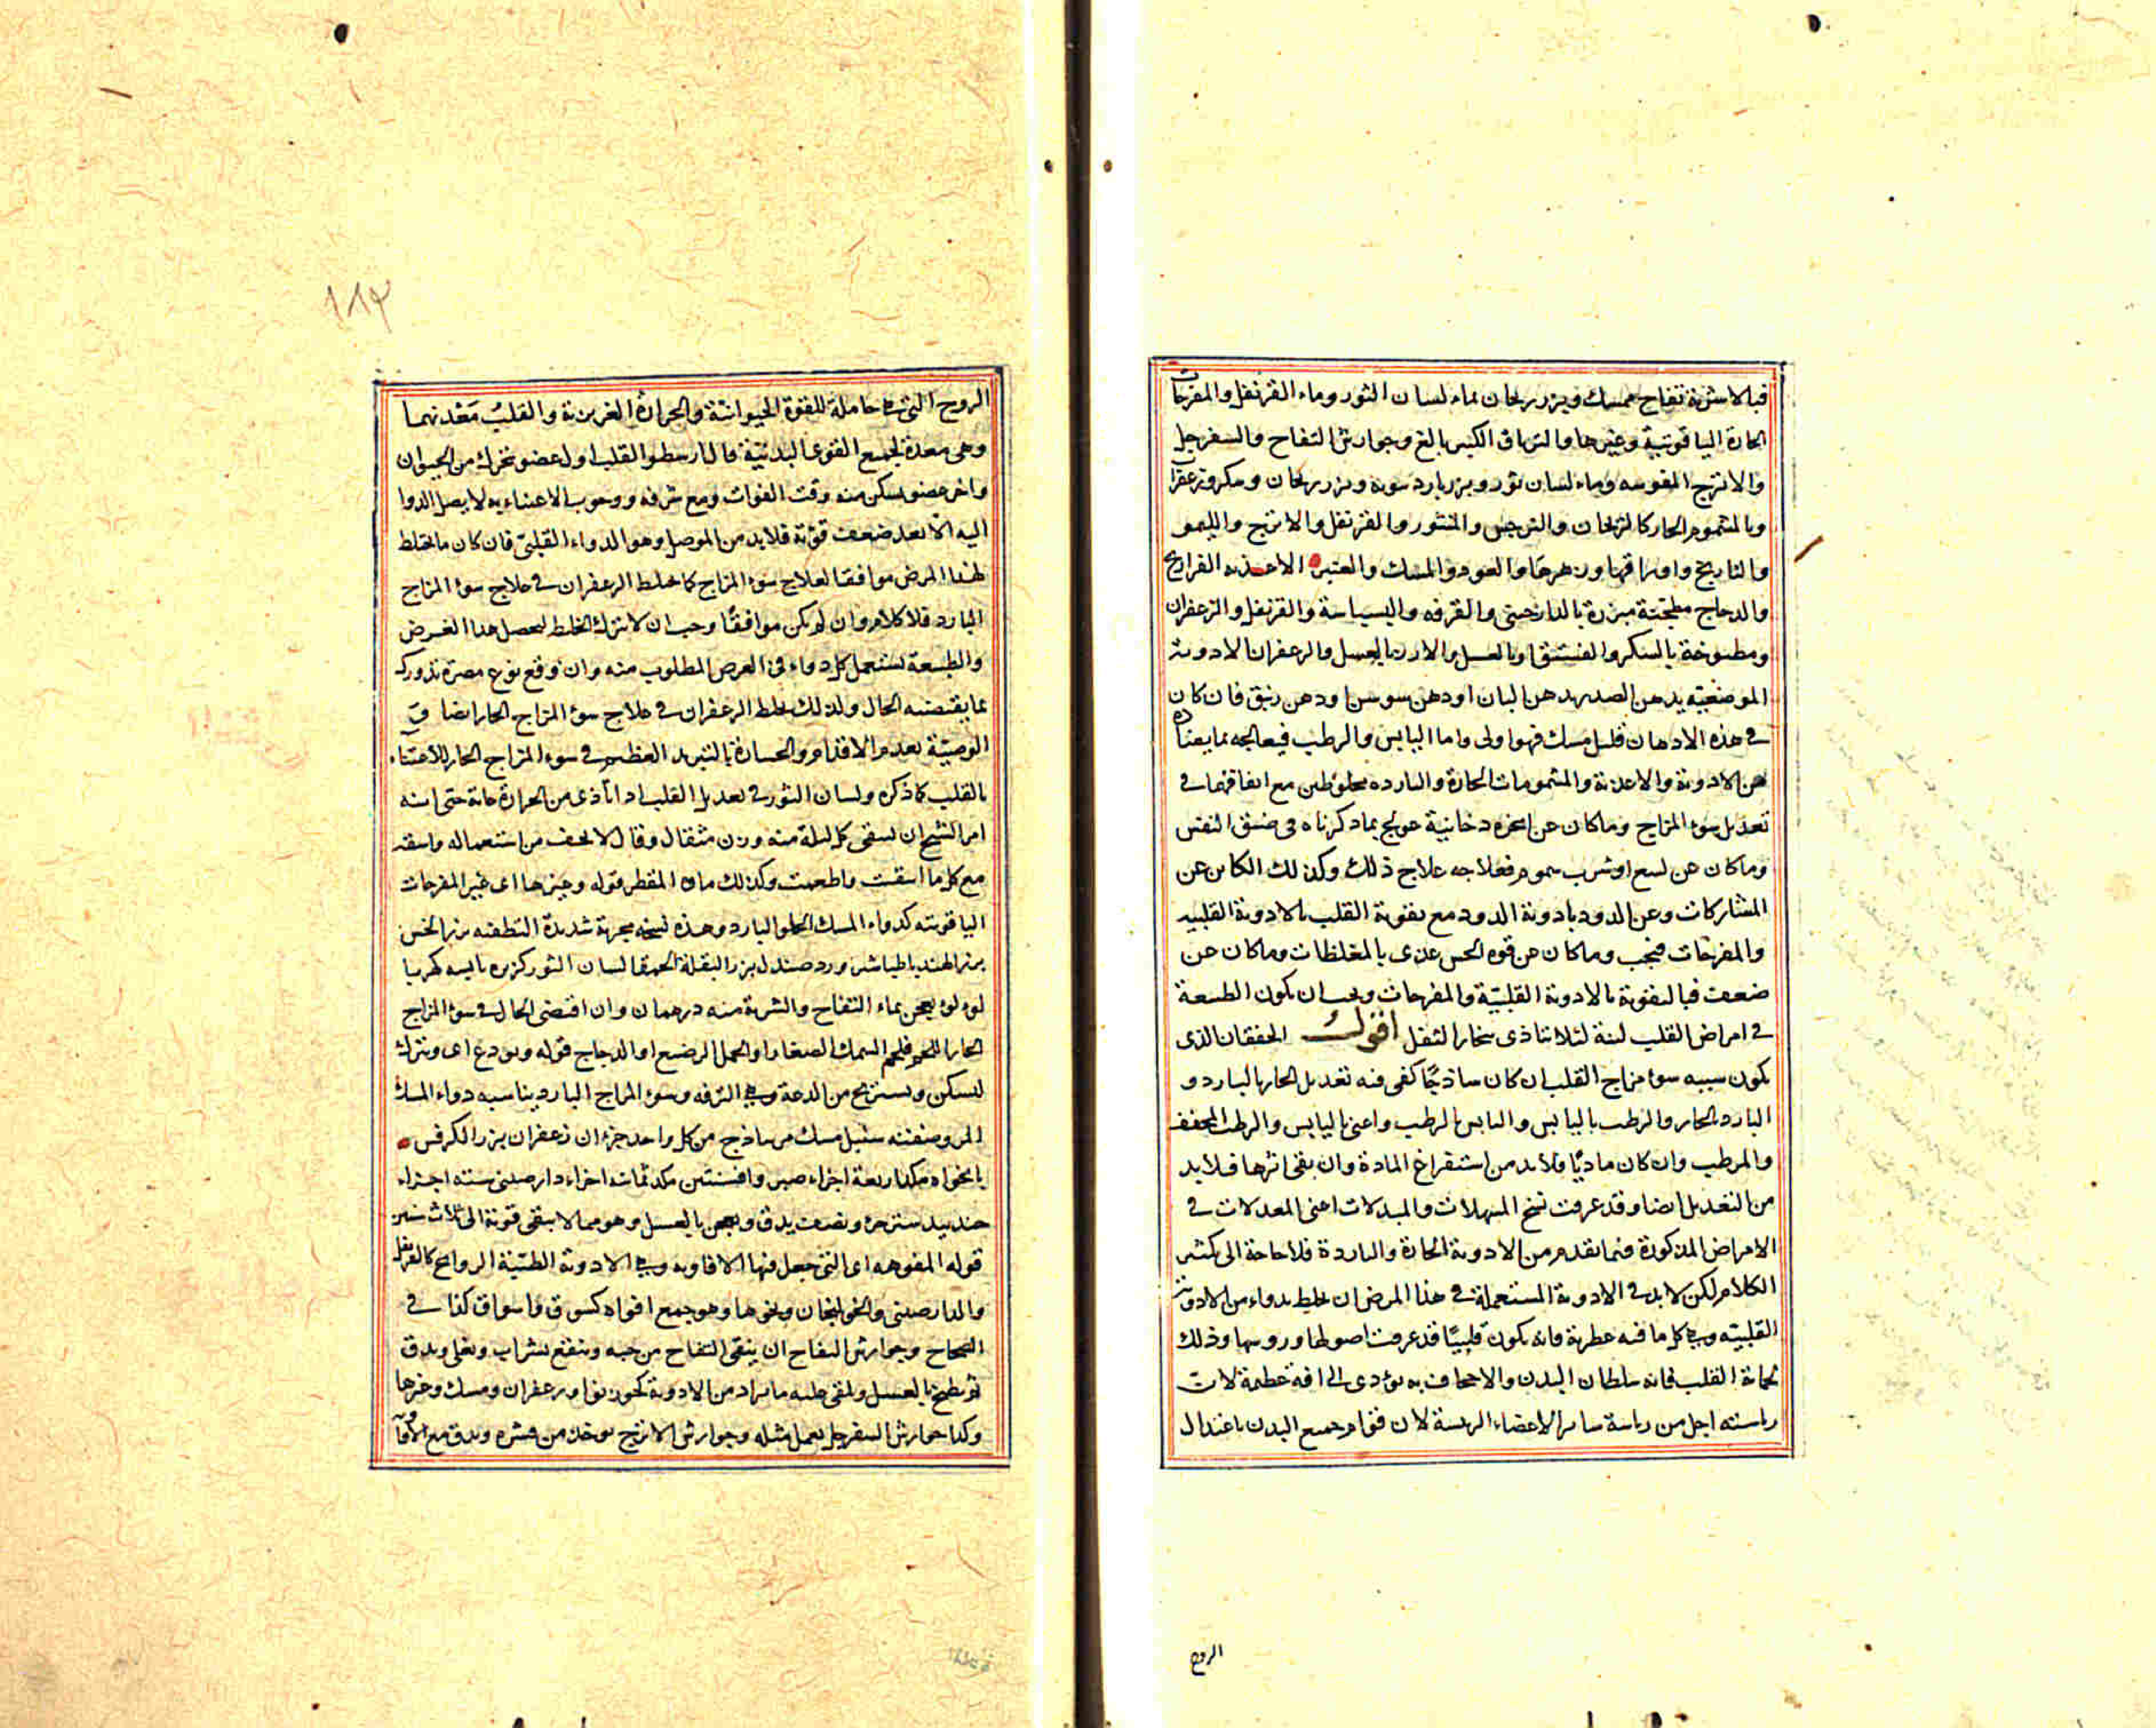 فبالاشربة تفاح ممسك وبزر ريحان بماء لسان الثور وماء القرنفل والمفرحات
الحارة الياقوتية وغيرها والترياق الكبير بالغ وجوارش التفاح والسفرجل
والاترج المفوهه وماء لسان ثور وبزر بارد سويه وبزر ريحان وسكر وزعفران
وبالمشموم الحار كالريحان والنرجس والمنثور والقرنفل والاترج والليمو
والنارنج واوراقها وزهرها والعود والمسك والعنبر الاغذيه الفراريج
والدجاج مطجنة مبزرة بالدارصينى والقرفه والبسباسة والقرنفل والزعفران
ومطبوخة بالسكر والفستق او بالعسل والارز بالعسل والزعفران الادوية
الموضعيه يدهن الصدر بدهن البان او دهن سوسن او دهن زنبق فان كان
فى هذه الادهان قليل مسك فهو اولى واما اليابس والرطب فيعالجه بما يضاده
من الادوية والاغذية والمشمومات الحارة والبارده مخلوطين مع اتفاقهما فى
تعديل سوء المزاج وماكان عن ابخره دخانية عولج بما ذكرناه فى ضيق النفس
وماكان عن لسع او شرب سموم فعلاجه علاج ذلك وكذلك الكاين عن
المشاركات وعن الدود بادوية الدود مع تقوية القلب بالادوية القلبيه
والمفرحات فيجب وماكان عن قوه الحس غذى بالمغلظات وماكان عن
ضعف فبالتقوية بالادوية القلبيّة والمفرحات ويجب ان يكون الطبيعة
فى امراض القلب لينة لئلا يتاذى ببخار الثفل اقول الخفقان الذى
يكون سببه سوء مزاج القلب ان كان ساذجًا كفى فيه تعديل الحار بالبارد و
البارد بالحار والرطب باليابس واليابس بالرطب واعنى باليابس والرطب المجفف
والمرطب وان كان ماديًا فلا بد من استفراغ المادة وان بقى اثرها فلا بد
من التعديل ايضا وقد عرفت نسخ المسهلات والمبدلات اعنى المعدلات فى
الامراض المذكورة فيما تقدم من الادوية الحارة والباردة فلا حاجة الى تكثير
الكلام لكن لا بد فى الادوية المستعملة فى هذا المرض ان يخلط بدواء من الادوية
القلبيّه وهى كل ما فيه عطرية فانه يكون قلبيًا قد عرفت اصولها وروسها وذلك
لحماية القلب فانه سلطان البدن والاجحاف به يؤدى الى افة عظيمة لان
رياسته اجل من رياسة ساير الاعضاء الرئيسة لان قوام جميع البدن باعتدال
الروح
١٨٣
الروح التى هى حاملة للقوة الحيوانية والحرارة الغريزية والقلب معدنهما
وهى معدة لجميع القوى البدنيّة قال ارسطو القلب اول عضو تحرك من الحيوان
واخر عضو يسكن منه وقت الفوات ومع شرفه ووجوب الاعتناء به لا يصل الدوا
اليه الا بعد ضعف قوّته فلا بد من الموصل وهو الدواء القلبىّ فان كان ما يخلط
لهذا المرض موافقا لعلاج سوء المزاج كما يخلط الزعفران فى علاج سوء المزاج
البارد فلا كلام وان لم يكن موافقًا وجب ان لا يترك الخلط ليحصل هذا الغرض
والطبيعة تستعمل كل دواء فى الغرض المطلوب منه وان وقع نوع مضرة تدورك
بما يقتضيه الحال ولذلك يخلط الزعفران فى علاج سوء المزاج الحار ايضا وفى
الوصيّة بعدم الاقدام والجسارة بالتبريد العظيم فى سوء المزاج الحار للاعتناء
بالقلب كما ذكره ولسان الثور فى تعديل القلب اذا تأذى من الحرارة غاية حتى انه
امر الشيخ ان يسقى كل ليلة منه وزن مثقال وقال لا تخف من استعماله واسقه
مع كل ما اسقيت واطعمت وكذلك ماؤه المقطر قوله وغيرها اى غير المفرحات
الياقوتيه كدواء المسك الحلو البارد وهذه نسخه مجربة شديدة التطفيه بزر الخس
بزر الهندبا طباشير ورد صندل بزر البقلة الحمقا لسان الثور كزبره يابسه كهربا
لؤلؤ يعجن بماء التفاح والشربة منه درهمان وان اقتضى الحال فى سوء المزاج
الحار اللحم فلحم السمك الصغار او الحمل الرضيع او الدجاج قوله ويودع اى ويترك
ليسكن ويستريح من الدعة وهى الترفه وسوء المزاج البارد يناسبه دواء المسك
المر وصفته سنبل مسك من ساذج من كل واحد جزءان زعفران بزر الكرفس
نانخواه مكد اربعة اجزاء صبر وافسنتين مكد ثمانيه اجزاء دارصينى سته اجزاء
جندبيدستر جزء ونصف يدق ويعجن بالعسل وهو مما لا يبقى قوته الى ثلاث سنين
قوله المفوهه اى التى جعل فيها الافاويه وهى الادوية الطيّبة الروايح كالقرنفل
والدارصينى والخولنجان ونحوها وهو جمع افواه كسوق واسواق كذا فى
الصحاح وجوارش التفاح ان ينقى التفاح من حبه وينقع بشراب ويغلى ويدق
ثم يطبخ بالعسل ويلقى عليه ما يراد من الادوية كجوزبوا وزعفران ومسك وغيرها
وكذا جوارش السفرجل يعمل مثله وجوارش الاترج يوخذ من قشره ويدق مع الافا